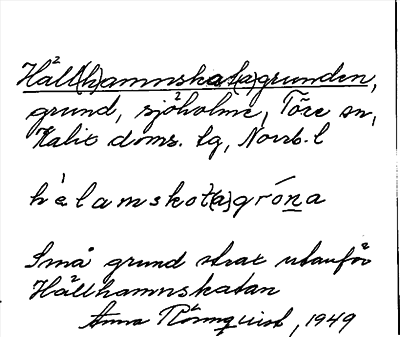 Häll(h)amnskat(a)grunden,
grund, sjöholme, Töre sn,
Kalix doms. lg, Norrb. l
hèlamskot(a)gróna
Små grund strax utanför
Hällhamnskatan
Anna Rönnquist, 1949